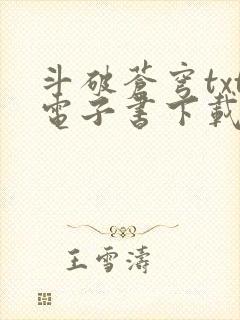 斗破蒼穹txt
電子書下載
王雪濤